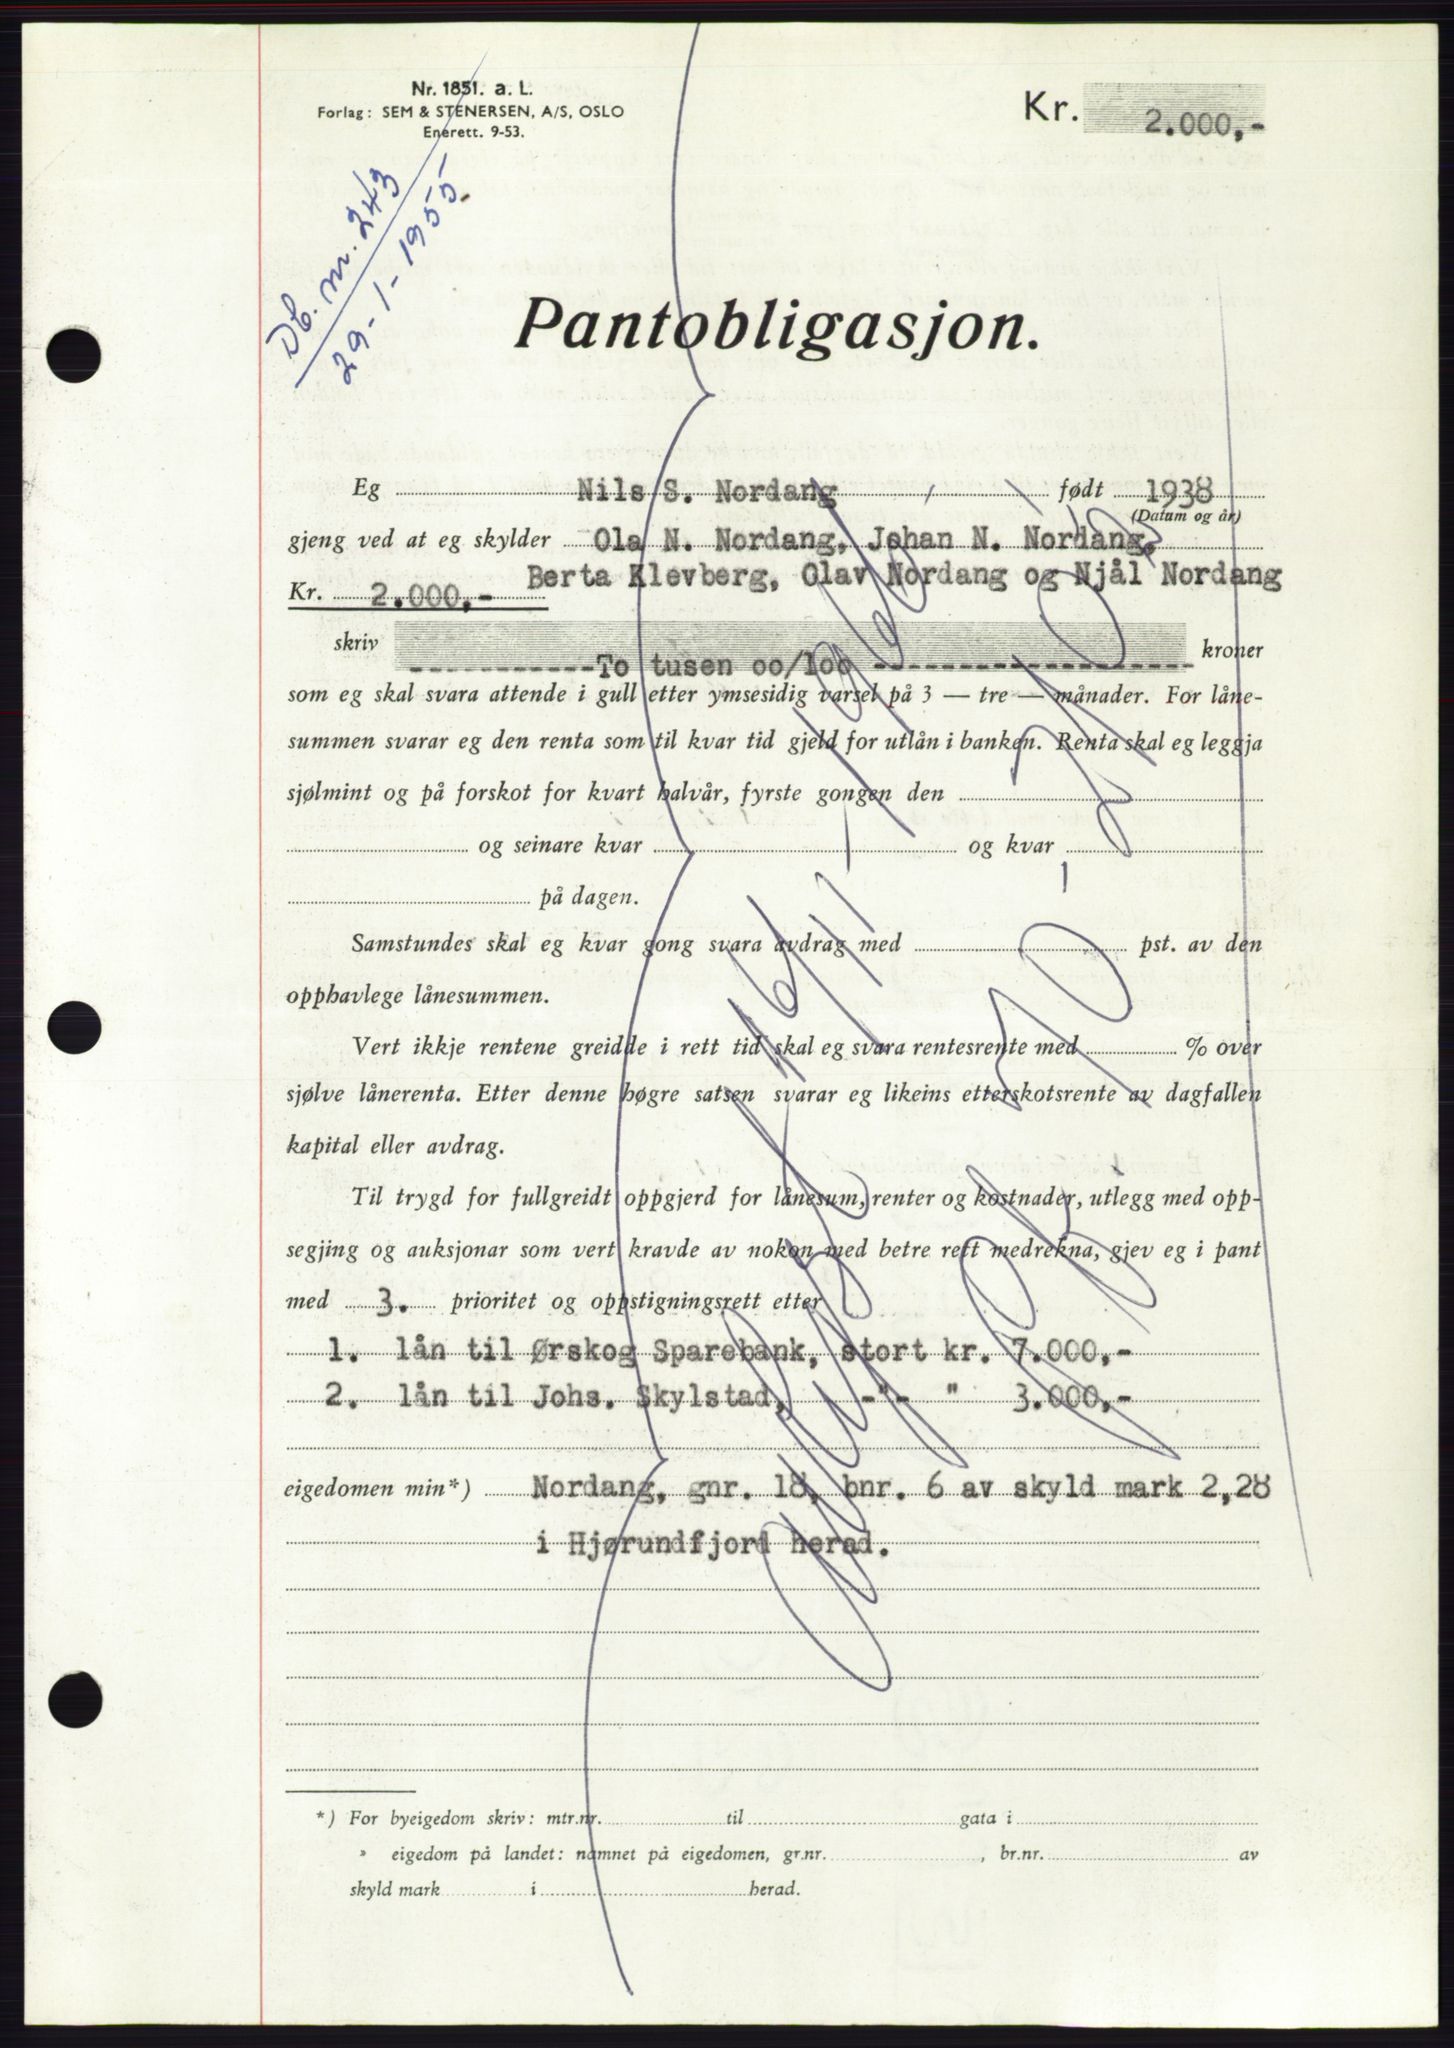 Nr. 1851. a. L.
Forlag: SEM & STENERSEN, A/S, OSLO
Enerett. 9-53.
Kr. 2.000,-
Db. nr. 243
29-1-1955
Pantobligasjon.
Eg Nils S. Nordang født 1938
(Datum og år)
gjeng ved at eg skylder Ola N. Nordang, Johan N. Nordang,
Berta Klevberg, Olav Nordang og Njål Nordang
Kr. 2.000,-
skriv ------------To tusen oo/loo ------------------- kroner
som eg skal svara attende i gull etter ymsesidig varsel på 3 — tre — månader. For låne-
summen svarar eg den renta som til kvar tid gjeld for utlån i banken. Renta skal eg leggja
sjølmint og på forskot for kvart halvår, fyrste gongen den
og seinare kvar og kvar
på dagen.
Samstundes skal eg kvar gong svara avdrag med pst. av den
opphavlege lånesummen.
Vert ikkje rentene greidde i rett tid skal eg svara rentesrente med % over
sjølve lånerenta. Etter denne høgre satsen svarar eg likeins etterskotsrente av dagfallen
kapital eller avdrag.
Til trygd for fullgreidt oppgjerd for lånesum, renter og kostnader, utlegg med opp-
segjing og auksjonar som vert kravde av nokon med betre rett medrekna, gjev eg i pant
med 3. prioritet og oppstigningsrett etter
1. lån til Ørskog Sparebank, stort kr. 7.000,-
2. lån til Johs. Skylstad, -"- " 3.000,-
eigedomen min*) Nordang, gnr. 18, bnr. 6 av skyld mark 2,28
i Hjørundfjord herad.
*) For byeigedom skriv: mtr.nr. til gata i
» eigedom på landet: namnet på eigedomen, gr.nr. , br.nr. av
skyld mark i herad.